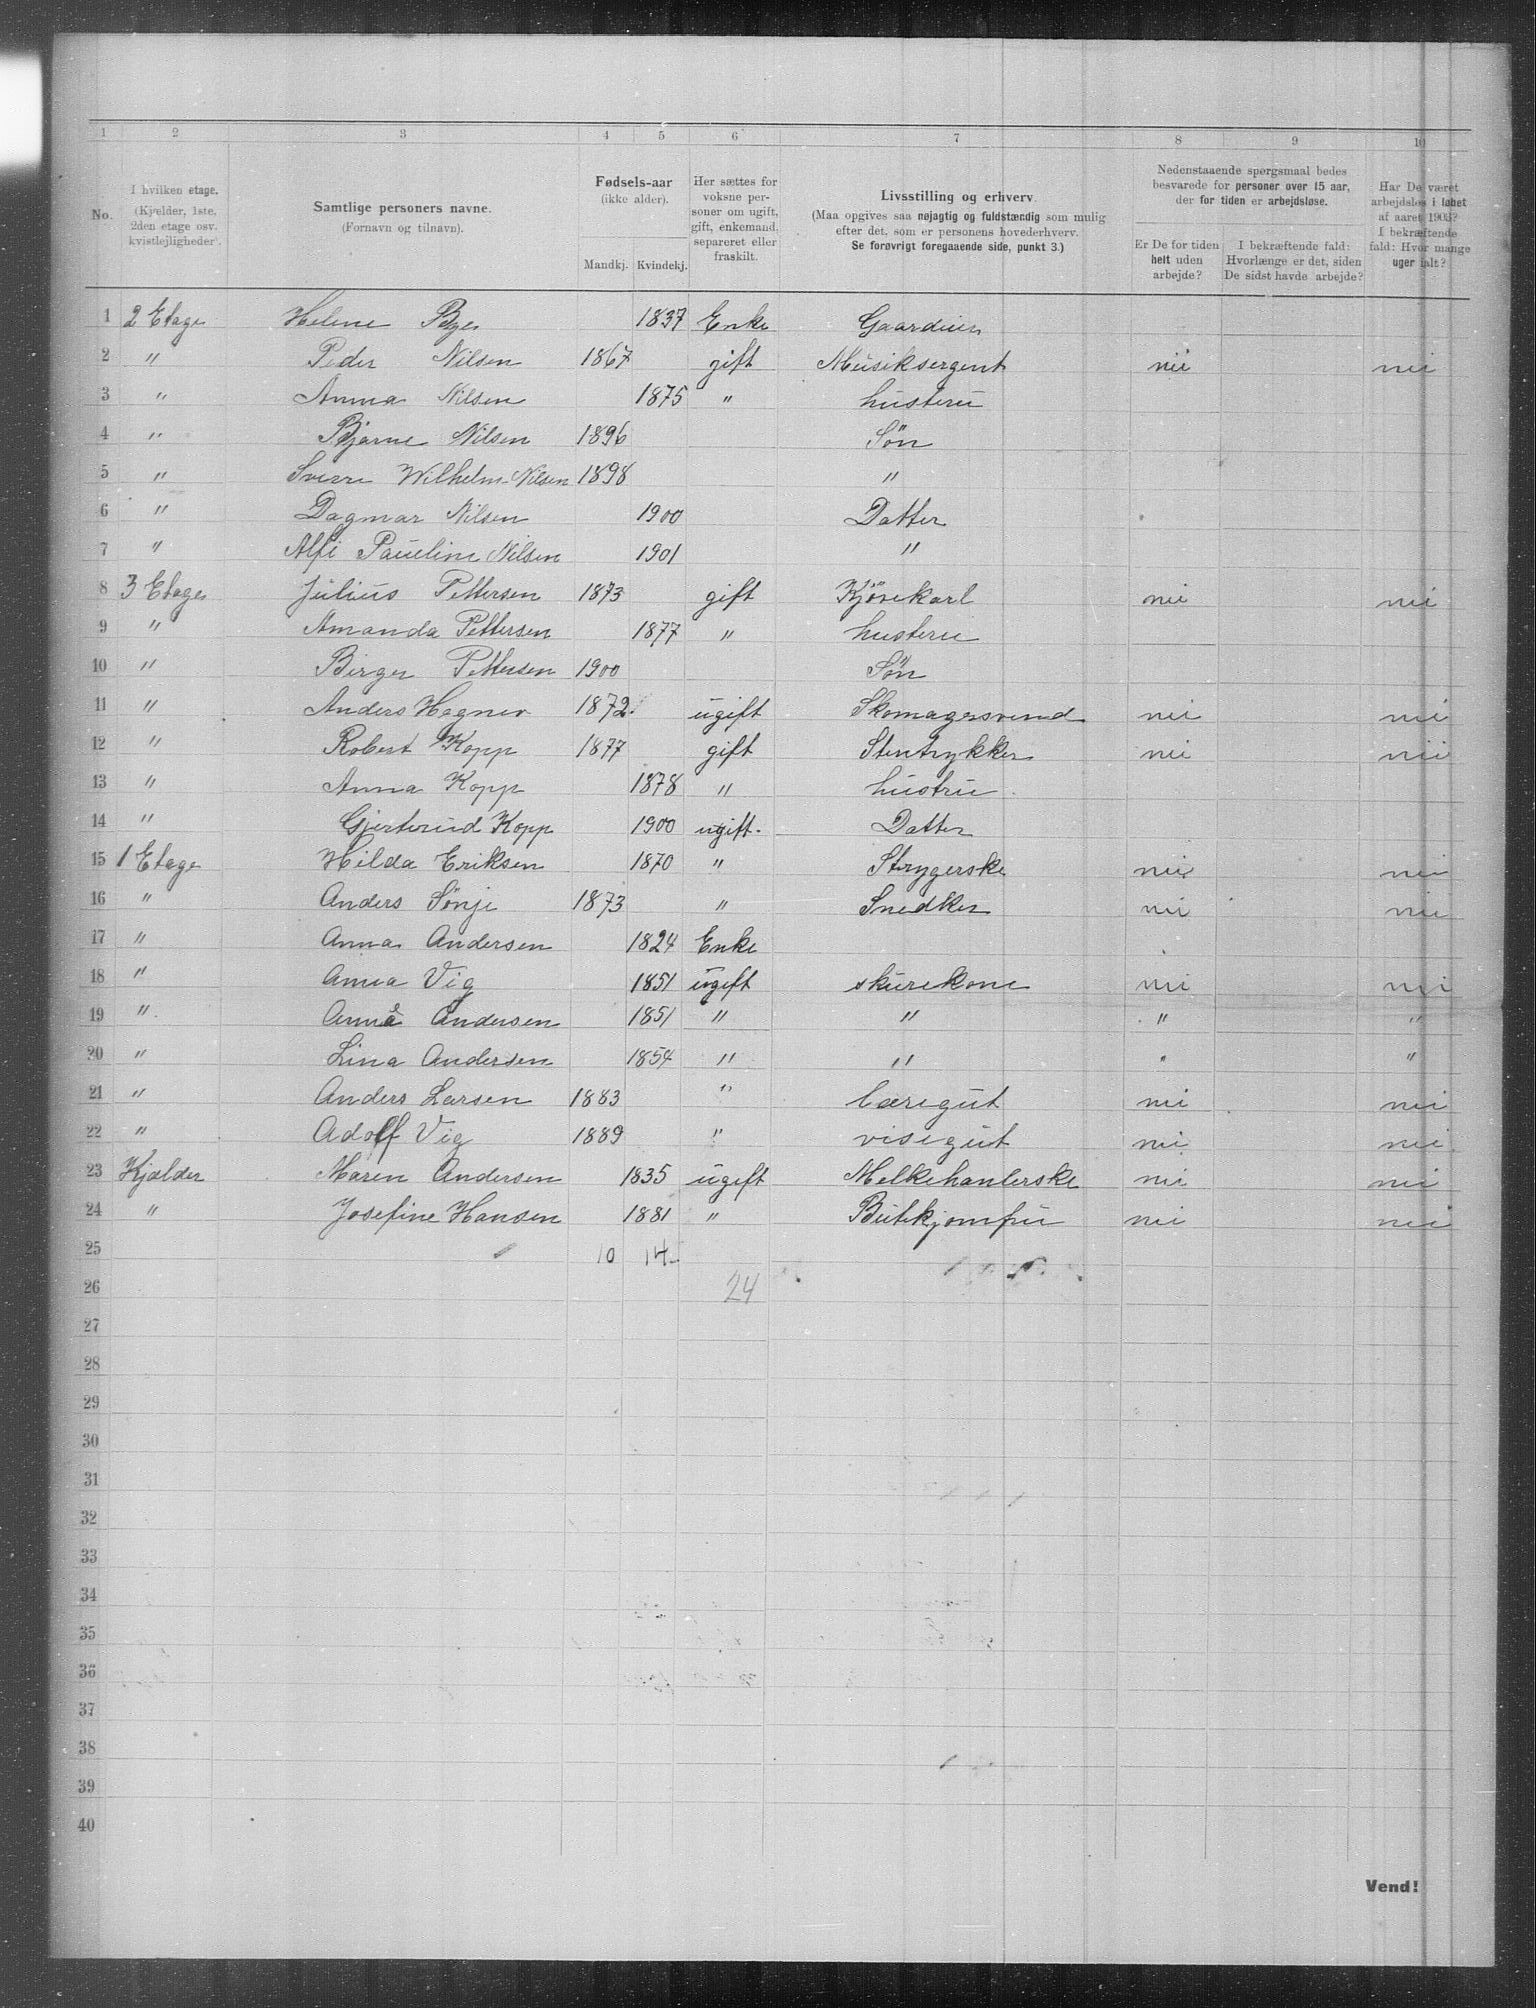 1 2 3 4 5 6 7 8 9 10
No. I hvilken etage. (Kjælder, 1ste, 2den etage osv. kvistlejligheder). Samtlige personers navne. (Fornavn og tilnavn). Fødsels-aar (ikke alder). Mandkj. Kvindekj. Her sættes for voksne personer om ugift, gift, enkemand, separeret eller fraskilt. Livsstilling og erhverv. (Maa opgives saa nøjagtig og fuldstændig som mulig efter det, som er personens hovederhverv. Se forøvrigt foregaaende side, punkt 3.) Nedenstaaende spørgsmaal bedes besvarede for personer over 15 aar, der for tiden er arbejdsløse. Er De for tiden helt uden arbejde? I bekræftende fald: Hvorlænge er det, siden De sidst havde arbejde? Har De været arbejdsløs i løbet af aaret 1903? I bekræftende fald: Hvor mange uger ialt?
1 2 Etage Helene Bye 1837 Enke
2 " Peder Nilsen 1867 gift Musiksergent nei nei
3 " Anna Nilsen 1875 " husteru
4 " Bjarne Nilsen 1896 Søn
5 " Sverre Wilhelm Nilsen 1898 "
6 " Dagmar Nilsen 1900 Datter
7 " Alfi Pauline Nilsen 1901 "
8 3 Etage Julius Pettersen 1873 gift Kjørekarl nei nei
9 " Amanda Pettersen 1877 " husteru
10 " Birger Pettersen 1900 Søn
11 " Anders Hagner 1872 ugift Skomagersvend nei nei
12 " Robert Kopp 1877 gift Stentrykker nei nei
13 " Anna Kopp 1878 " hustru
14 " Gjerterud Kopp 1900 ugift. Datter
15 1 Etage Hilda Eriksen 1870 " Strygerske nei nei
16 " Anders Sönje 1873 " Snedker nei nei
17 " Anna Andersen 1824 Enke
18 " Anna Vig 1851 ugift skurekone nei nei
19 " Anna Andersen 1851 " " " "
20 " Lina Andersen 1854 " " " "
21 " Anders Larsen 1883 " læregut nei nei
22 " Adolf Vig 1889 " visegut nei nei
23 Kjælder Maren Andersen 1835 ugift Melkehanlerske nei nei
24 " Josefine Hansen 1881 " Butikjomfru nei nei
25 10 14
26 24
27
28
29
30
31
32
33
34
35
36
37
38
39
40
Vend!